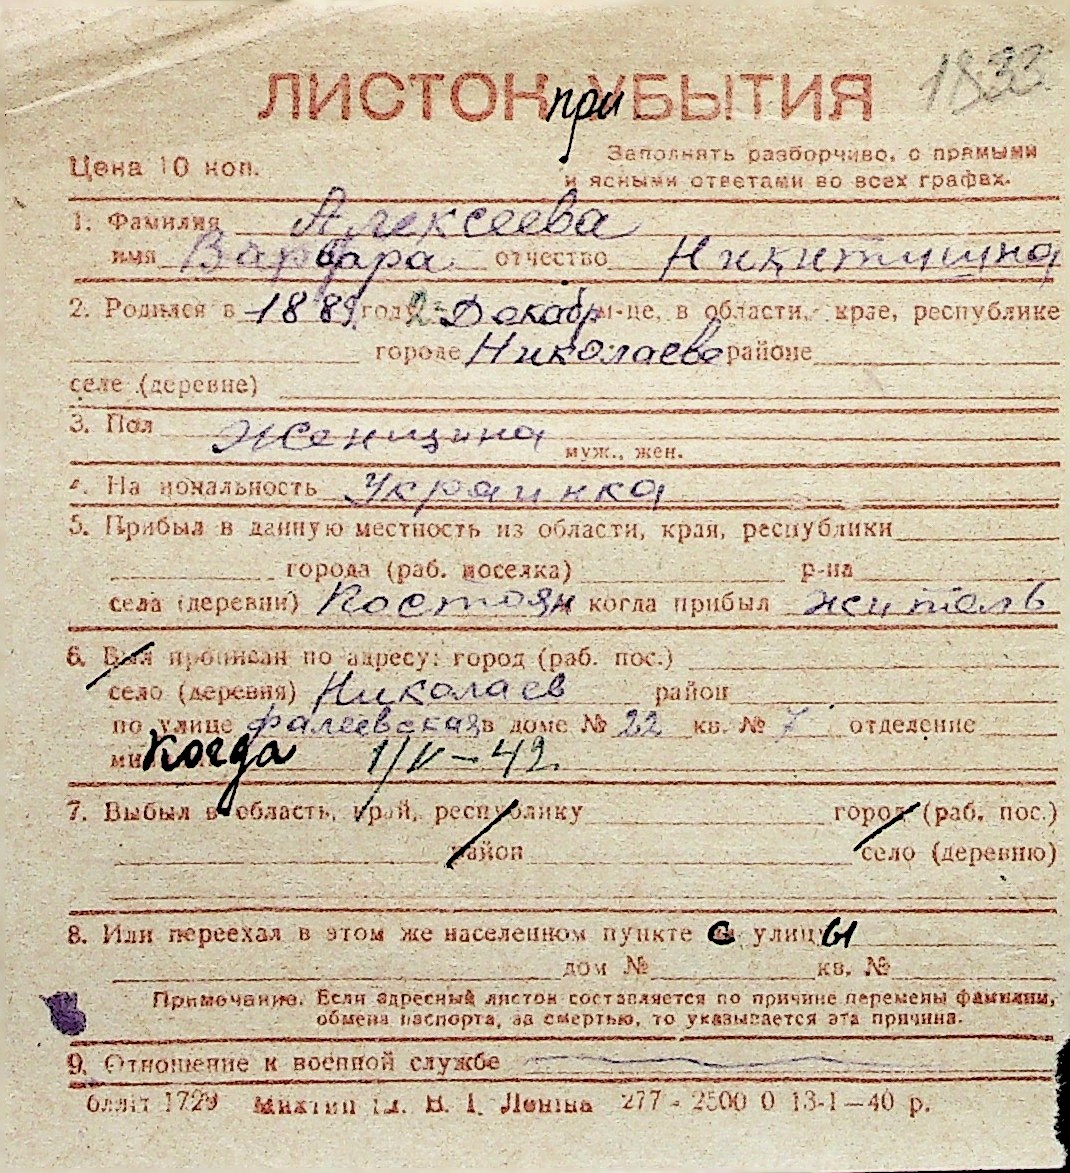 1833
ЛИСТОК приУБЫТИЯ
Цена 10 коп.
Заполнять разборчиво, с прямыми
и ясными ответами во всех графах.
1. Фамилия Алексеева
имя Варвара отчество Никитишна
2. Родился в 1889 год 2 Декабр м-це, в области, крае, республике
городе Николаеве районе
селе (деревне)
3. Пол Женщина
муж., жен.
4. На иональность Украинка
5. Прибыл в данную местность из области, края, республики
города (раб. поселка) р-на
села (деревни) Постоян когда прибыл житель
6. Был прописан по адресу: город (раб. пос.)
село (деревня) Николаев район
по улице Фалеевская в доме № 22 кв. № 7 отделение
ми Когда 1/V-42
7. Выбыл в область, край, республику город (раб. пос.)
район село (деревню)
8. Или переехал в этом же населенном пункте с улицы
дом № кв. №
Примечание. Если адресный листок составляется по причине перемены фамилии,
обмена паспорта, за смертью, то указывается эта причина.
9. Отношение к военной службе
1729 В. І. Леніна 277 - 2500 0 13-1-40 р.